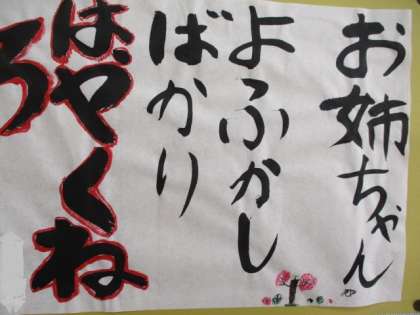 お姉ちゃん
よふかし
ばかり
はやくね
ろ